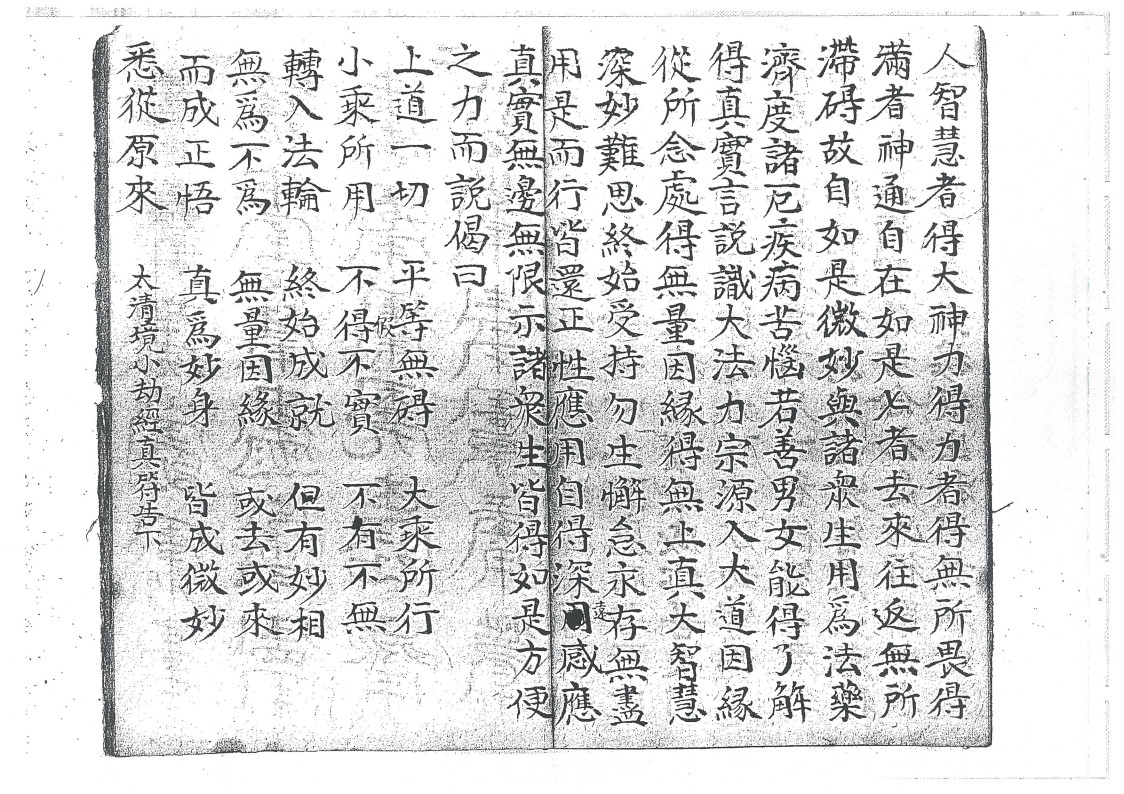 人智慧者得大神力得力者得無所畏得
滿者神通自在如是七者去來往返無所
滯碍故自如是微妙與諸衆生用爲法藥
濟度諸厄疾病苦惱若善男女能得了解
得真實言説識大法力宗源入大道因緣
從所念處得無量因緣得無上真大智慧
深妙難思終始受持勿生懈怠永存無盡
用是而行皆還正性應用自得深遠感應
真實無邊無限示諸衆生皆得如是方便
之力而説偈曰
上道一切 平等無碍 大乘所行
小乘所用 不得不實 不有不無
假
轉入法輪 終始成就 但有妙相
無爲不爲 無量因緣 或去或來
而成正悟 真爲妙身 皆成微妙
悉從原來 太清境小劫經真符告下